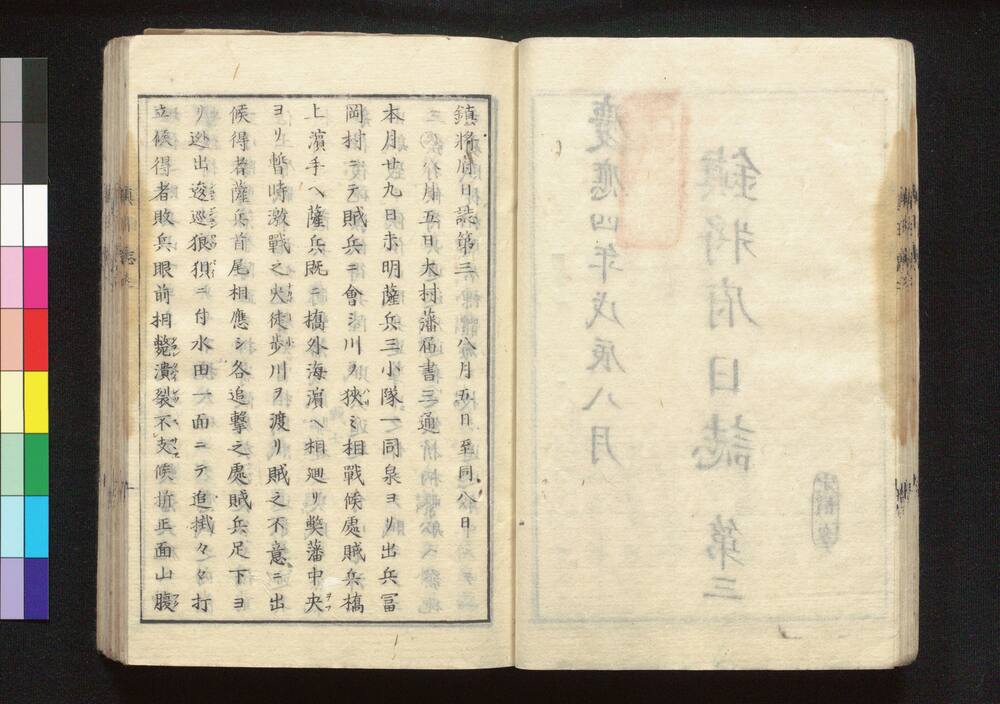 鎮将府日誌第三 八月五日至同八日
三 八月五日大村藩届書三通
本月廿九日未明薩兵三小隊一同泉ヨリ出兵冨
岡村ニテ賊兵ニ會シ川ヲ挾ミ相戰候處賊兵橋
上濱手ヘ薩兵既ニ橋外海濵ヘ相廻リ弊藩中央
ヨリ暫時激戰之火徒歩川ヲ渡リ賊之不意ニ出
候得者薩兵首尾相應シ各追撃之處賊兵足下ヨ
リ迯出逡巡狼狽ニ付水田一面ニテ追掛々々打
立候得者敗兵眼前相斃潰裂不支候折正面山腹